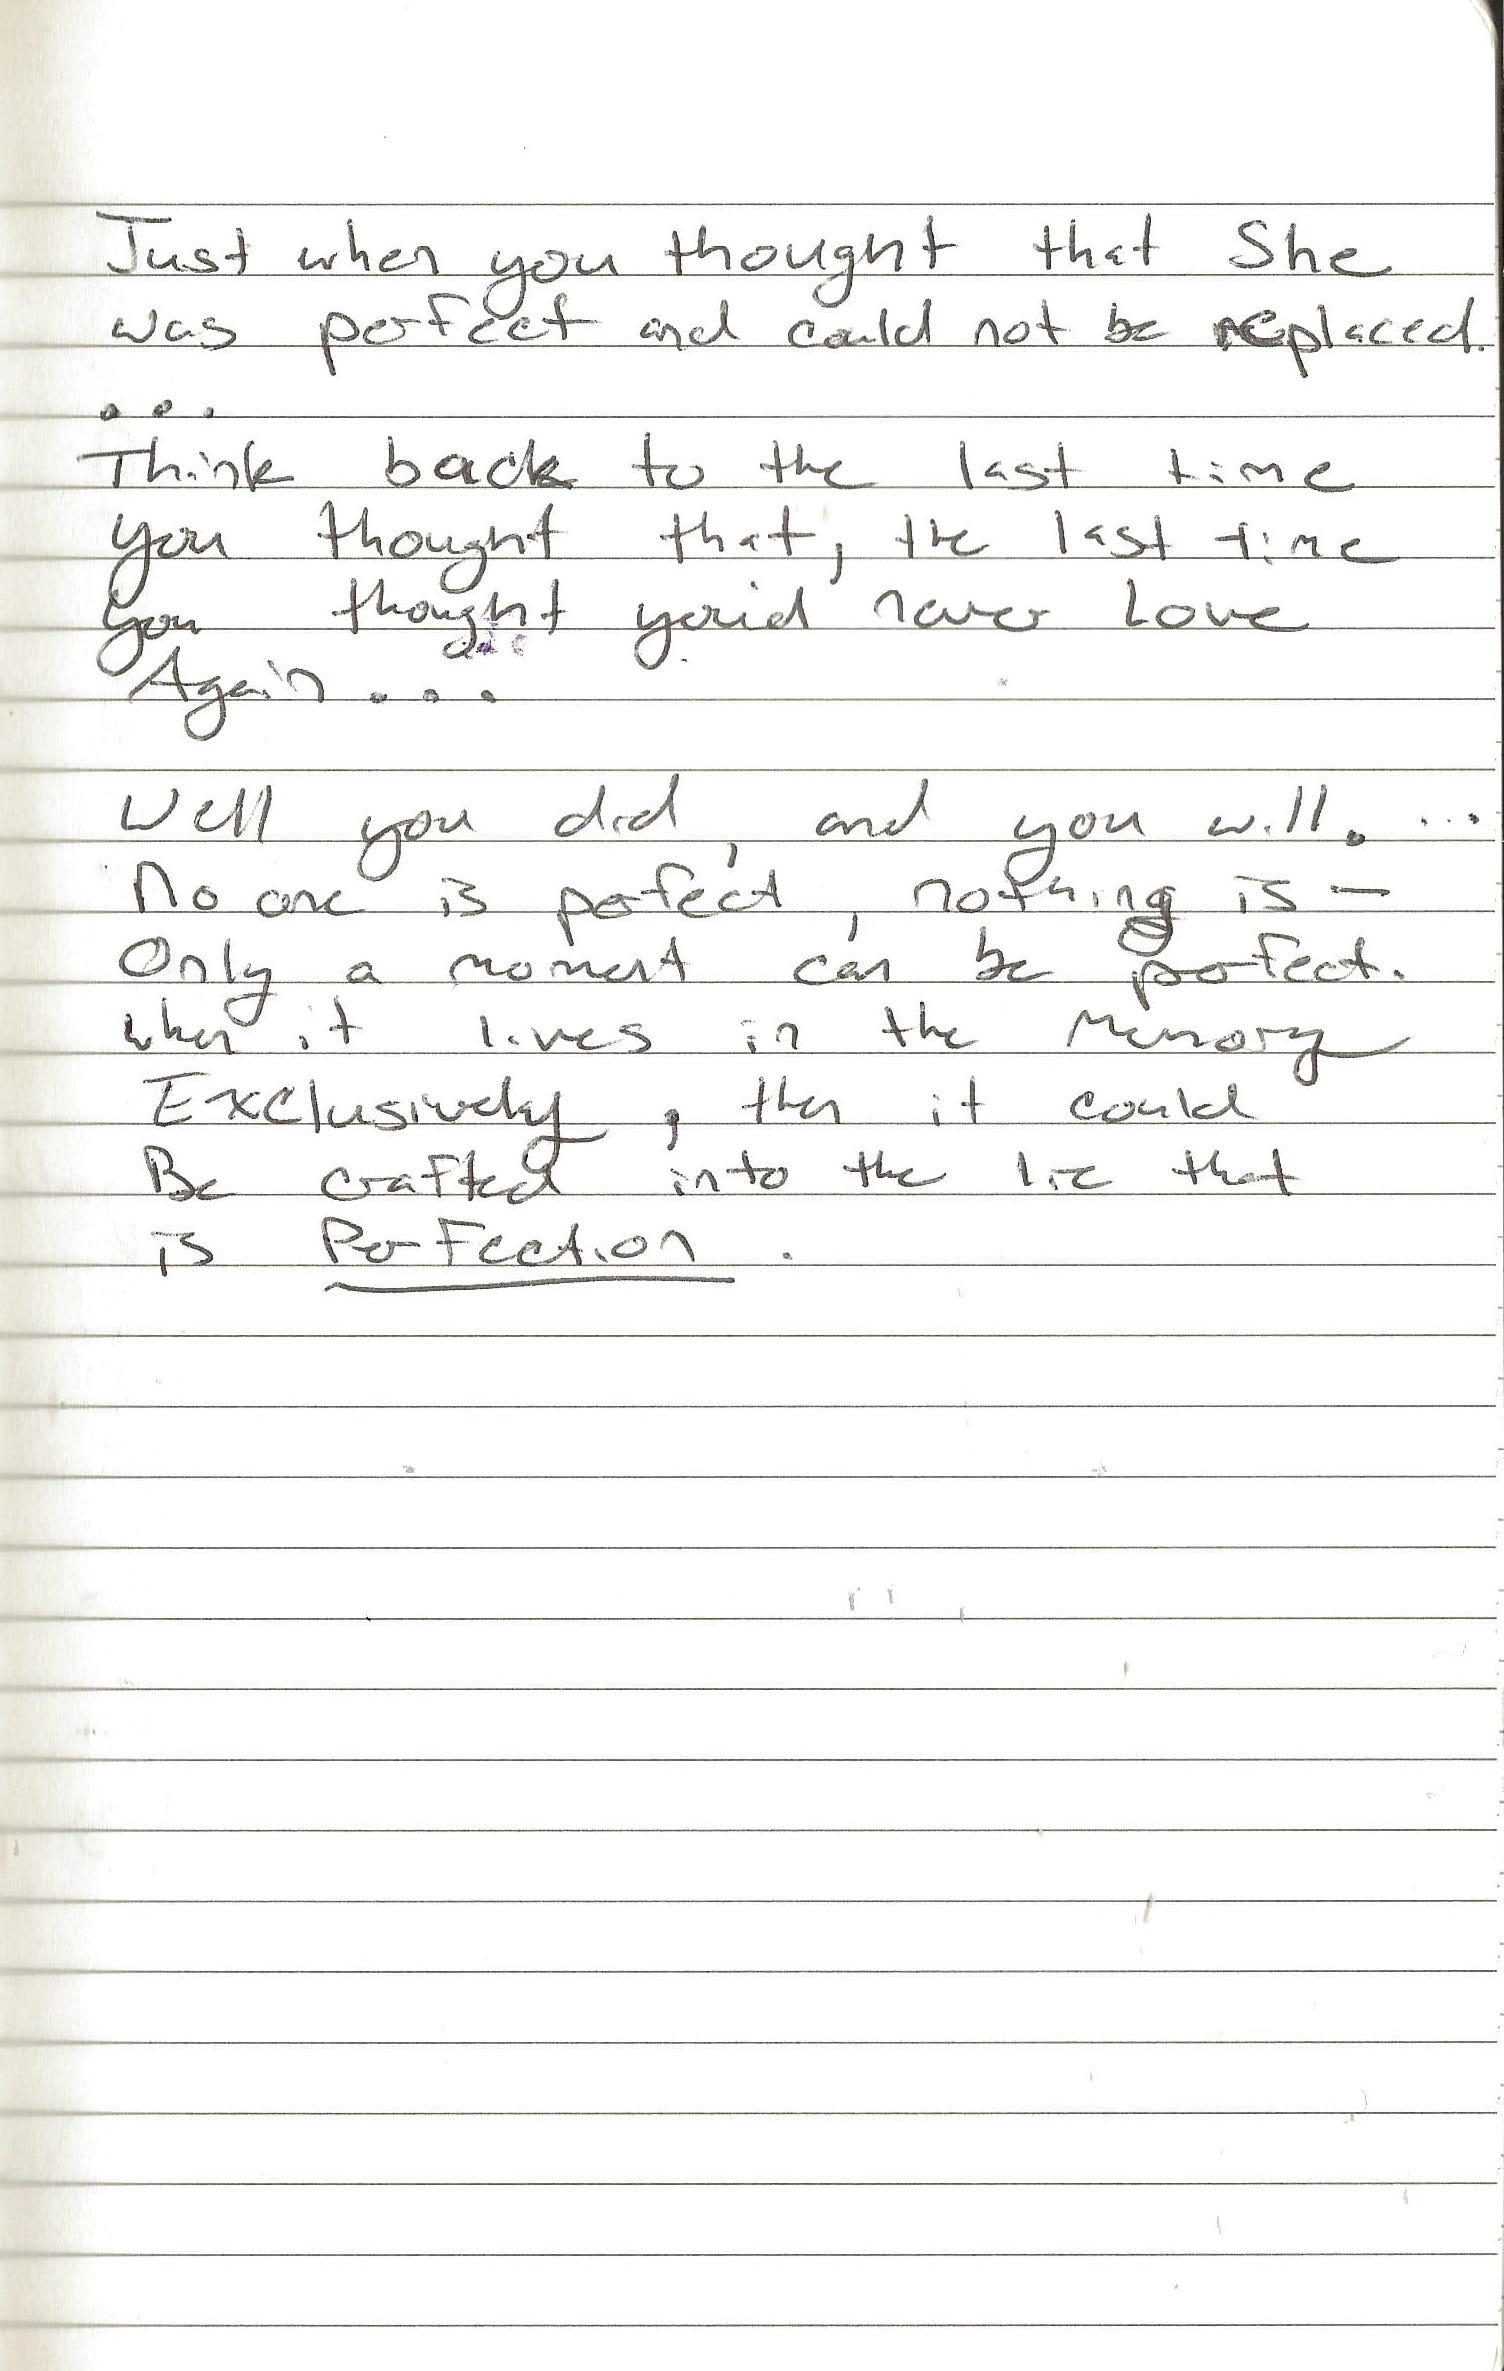 Just when you thought that She
was perfect and could not be replaced.
...
Think back to the last time
you thought that, the last time
you thought you'd never Love
Again...
Well you did, and you will. ...
No one is perfect, nothing is —
Only a moment can be perfect.
when it lives in the Memory
Exclusively, then it could
Be crafted into the lie that
is Perfection.